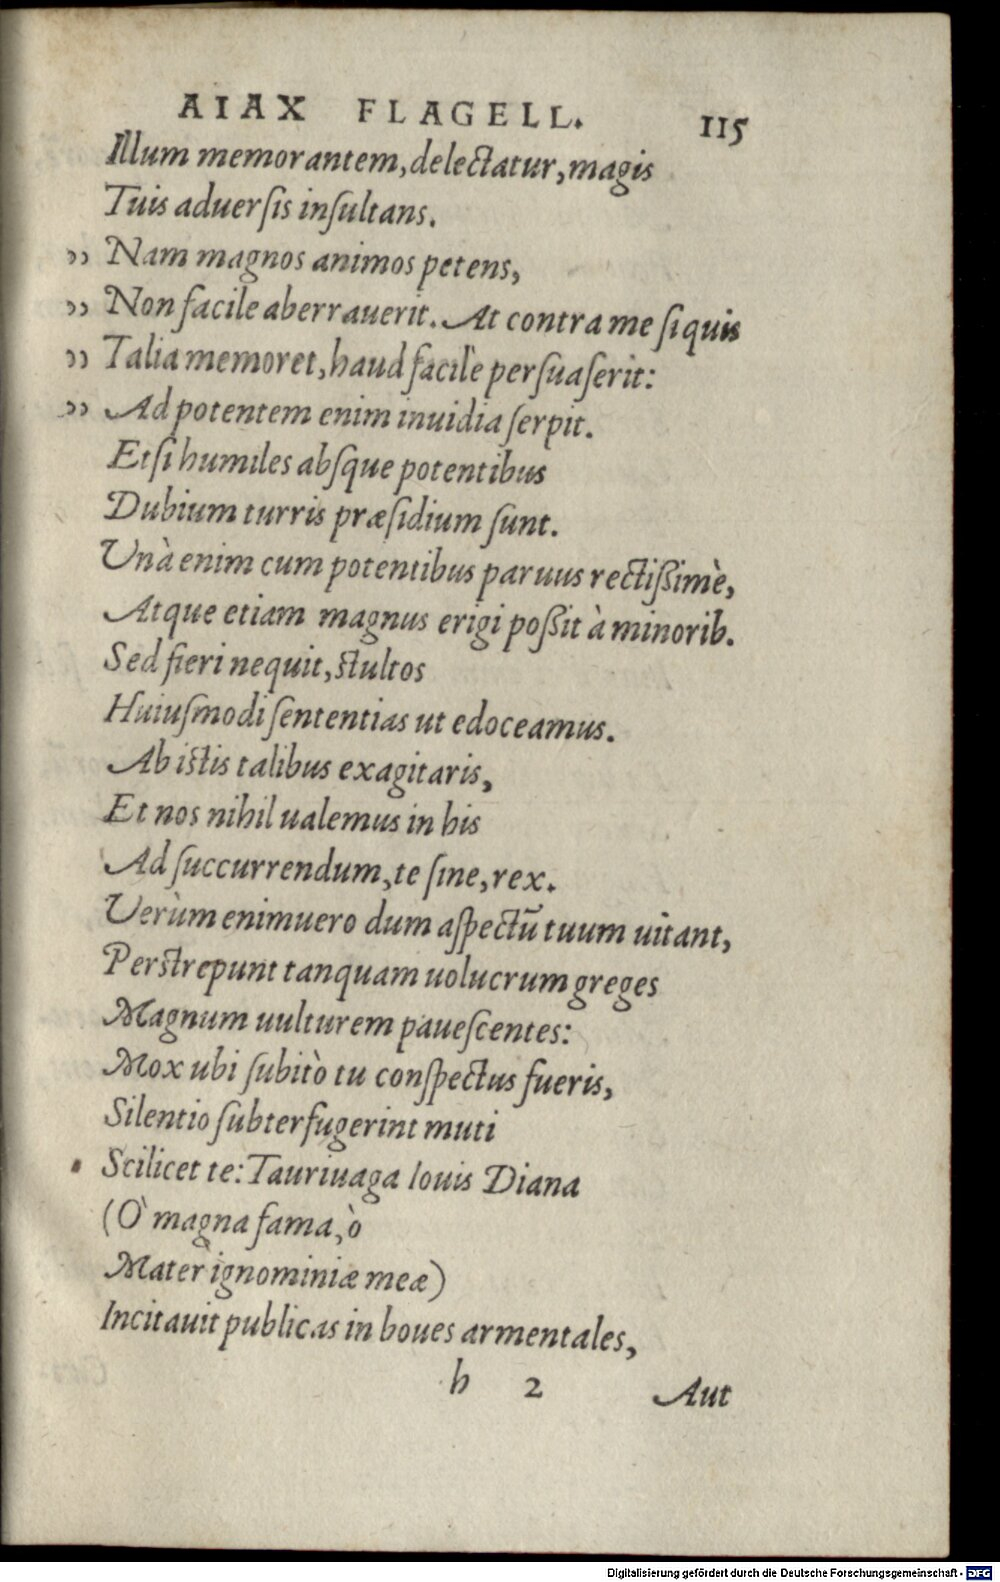 AIAX FLAGELL. 115
Illum memorantem, delectatur, magis
Tuis aduerſis inſultans.
,, Nam magnos animos petens,
,, Non facile aberrauerit. At contra me ſi quis
,, Talia memoret, haud facilè perſuaſerit:
,, Ad potentem enim inuidia ſerpit.
Etſi humiles abſque potentibus
Dubium turris præſidium ſunt.
Unà enim cum potentibus paruus rectißimè,
Atque etiam magnus erigi poßit à minorib.
Sed fieri nequit, ſtultos
Huiuſmodi ſententias ut edoceamus.
Ab iſtis talibus exagitaris,
Et nos nihil ualemus in his
Ad ſuccurrendum, te ſine, rex.
Verùm enimuero dum aſpectũ tuum uitant,
Perſtrepunt tanquam uolucrum greges
Magnum uulturem paueſcentes:
Mox ubi ſubitò tu conſpectus fueris,
Silentio ſubterfugerint muti
Scilicet te: Tauriuaga Iouis Diana
(Ò magna fama, ò
Mater ignominiæ meæ)
Incitauit publicas in boues armentales,
h 2 Aut
Digitalisierung gefördert durch die Deutsche Forschungsgemeinschaft - DFG